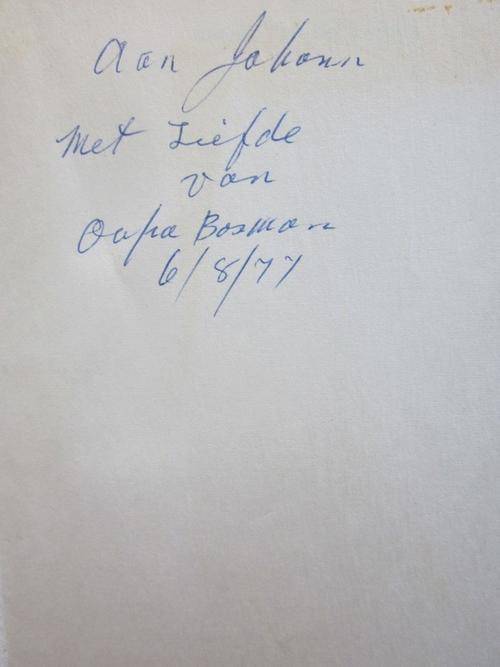 Aan Johann
Met Liefde
van
Oupa Bosman
6/8/77